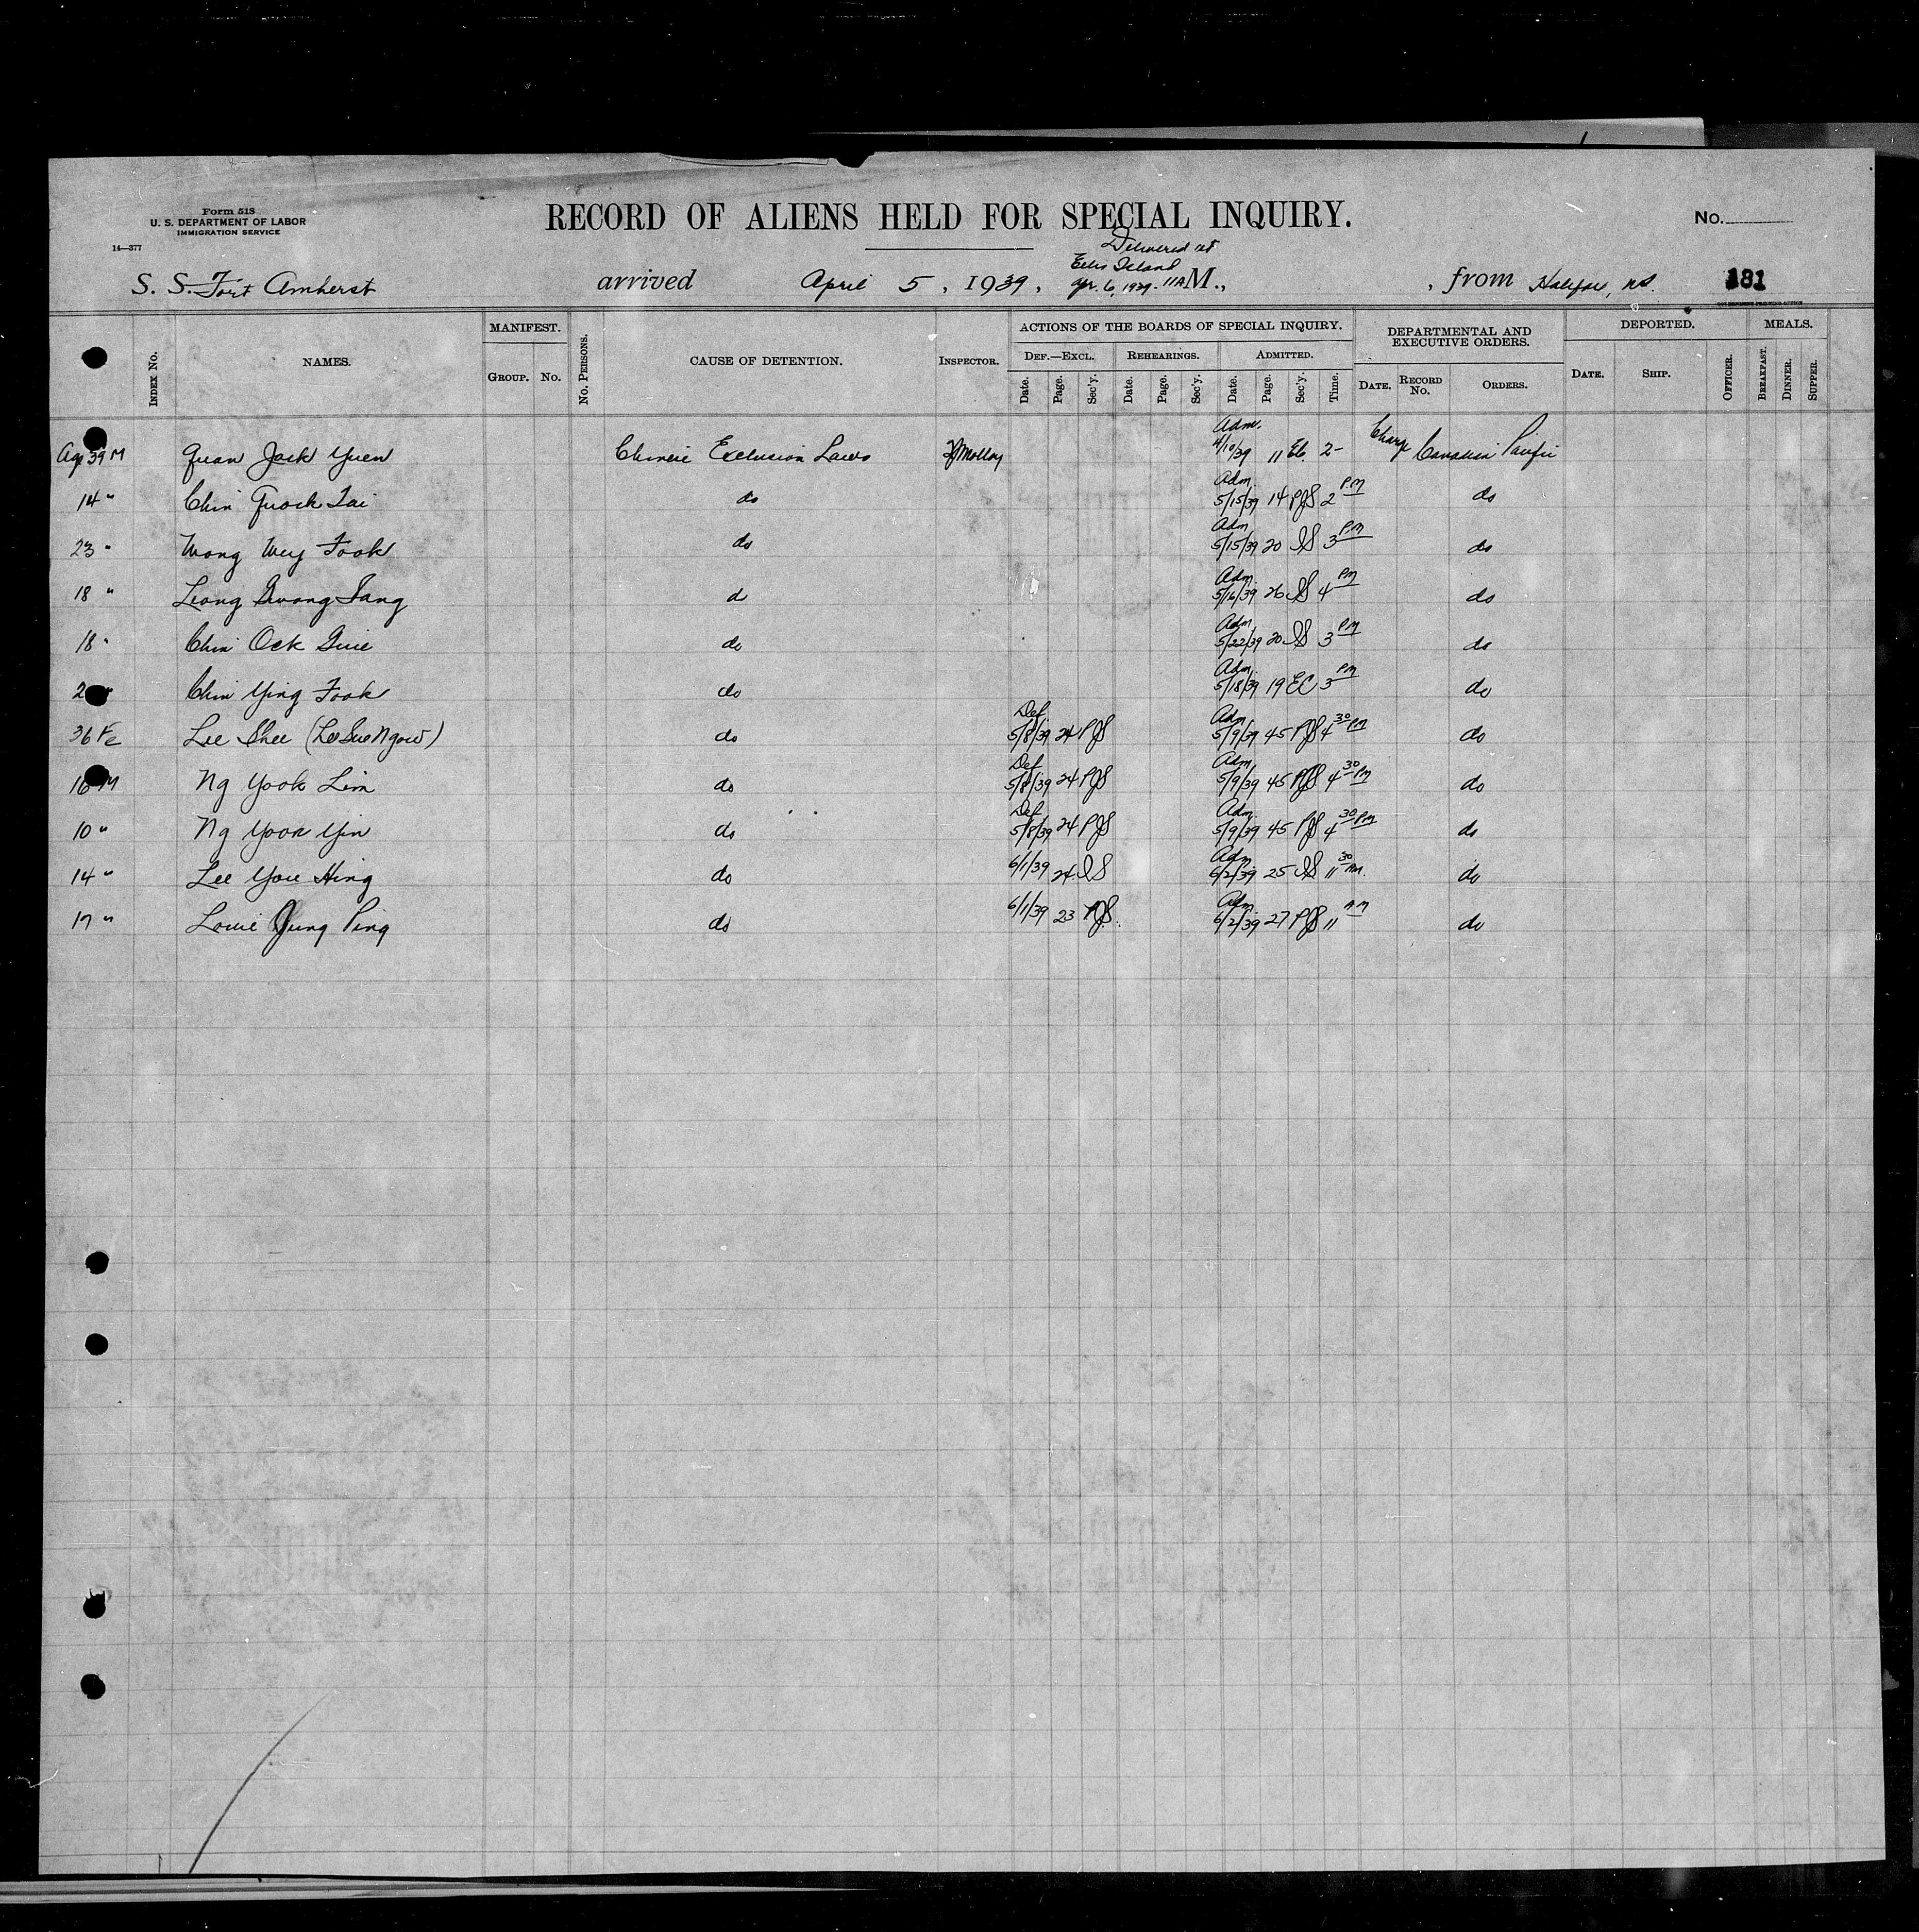 Form 518
U. S. DEPARTMENT OF LABOR
IMMIGRATION SERVICE
14—377
RECORD OF ALIENS HELD FOR SPECIAL INQUIRY.
No.
Delivered at
Ellis Island
S. S. Fort Amherst arrived April 5, 1939, Apr. 6, 1939. 11 A M., , from Halifax, N.S. 181
INDEX No. NAMES. MANIFEST. GROUP. No. No. PERSONS. CAUSE OF DETENTION. INSPECTOR. ACTIONS OF THE BOARDS OF SPECIAL INQUIRY. DEPARTMENTAL AND EXECUTIVE ORDERS. DEPORTED. MEALS.
DEF.—EXCL. REHEARINGS. ADMITTED.
Date. Page. Sec'y. Date. Page. Sec'y. Date. Page. Sec'y. Time. DATE. RECORD No. ORDERS. DATE. SHIP. OFFICER. BREAKFAST. DINNER. SUPPER.
Age 39 M Quan Jack Yuen Chinese Exclusion Laws Molloy Adm. 11 2- Charge Canadian Pacific
14 " Chin Quock Tai do Adm. 5/15/39 14 PJS 2 PM do
23 " Wong Wey Fook do Adm 5/15/39 20 IS 3 PM do
18 " Leong Gwong Tang do Adm. 5/16/39 26 IS 4 PM do
18 " Chin Ock Suie do Adm. 5/22/39 20 IS 3 PM do
Chin Ying Fook do Adm. 5/18/39 19 EC 3 PM do
36 Fe Lee Shee (Lee Sue Ngow) do Def 5/8/39 24 PJS Adm 5/9/39 45 PJS 4 30 PM do
16 M Ng Yook Lim do Def 5/8/39 24 PJS Adm 5/9/39 45 PJS 4 30 PM do
10 " Ng Yoon Yin do Def 5/8/39 24 PJS Adm. 5/9/39 45 PJS 4 30 PM do
14 " Lee You Hing do 6/1/39 24 IS Adm 6/2/39 25 IS 11 30 AM. do
17 " Louie Jung Ping do 6/1/39 23 PJS. Adm 6/2/39 27 PJS 11 AM do